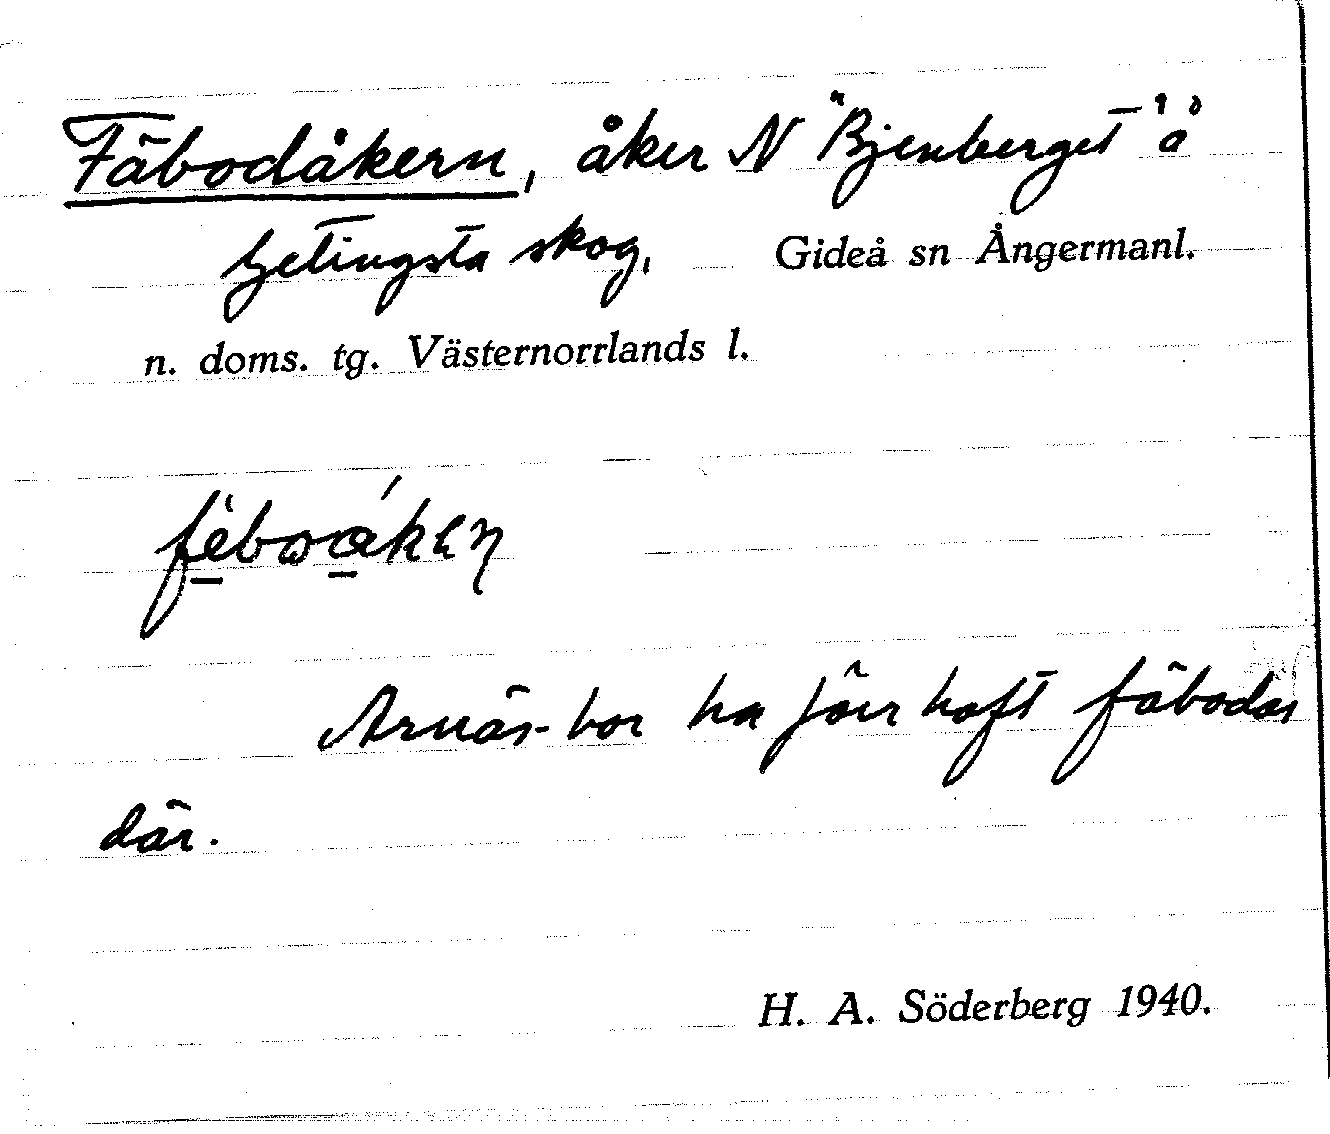 Fäbodåkern, åker N "Bjenberget" å
Getingsta skog, Gideå sn Ångermanl.
n. doms. tg. Västernorrlands l.
Arnäs-bor ha förr haft fäbodar
där.
H. A. Söderberg 1940.